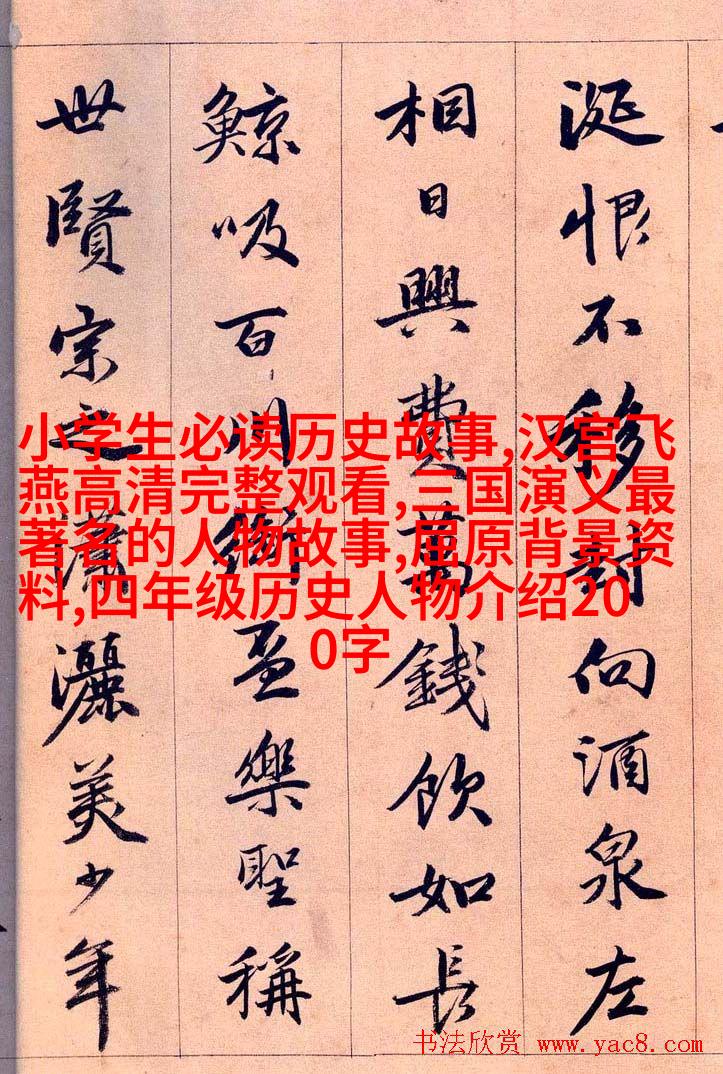 涎恨不移封向酒泉左
相日興費萬錢飲如長
鯨吸百川銜盃樂聖稱
世賢宗之瀟灑美少年
小学生必读历史故事,汉宫飞
燕高清完整观看,三国演义最
著名的人物故事,屈原背景资
料,四年级历史人物介绍20
0字
书法欣赏 www.yac8.com